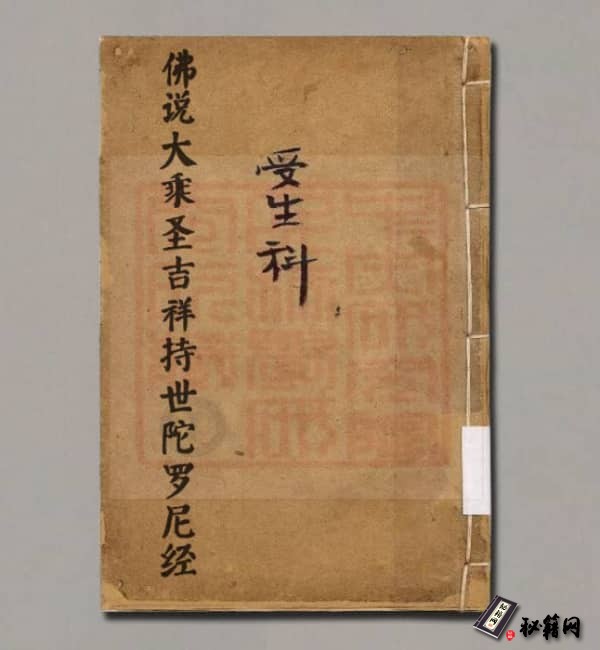 佛说大乘圣吉祥持世陀罗尼经
受生科
秘籍网